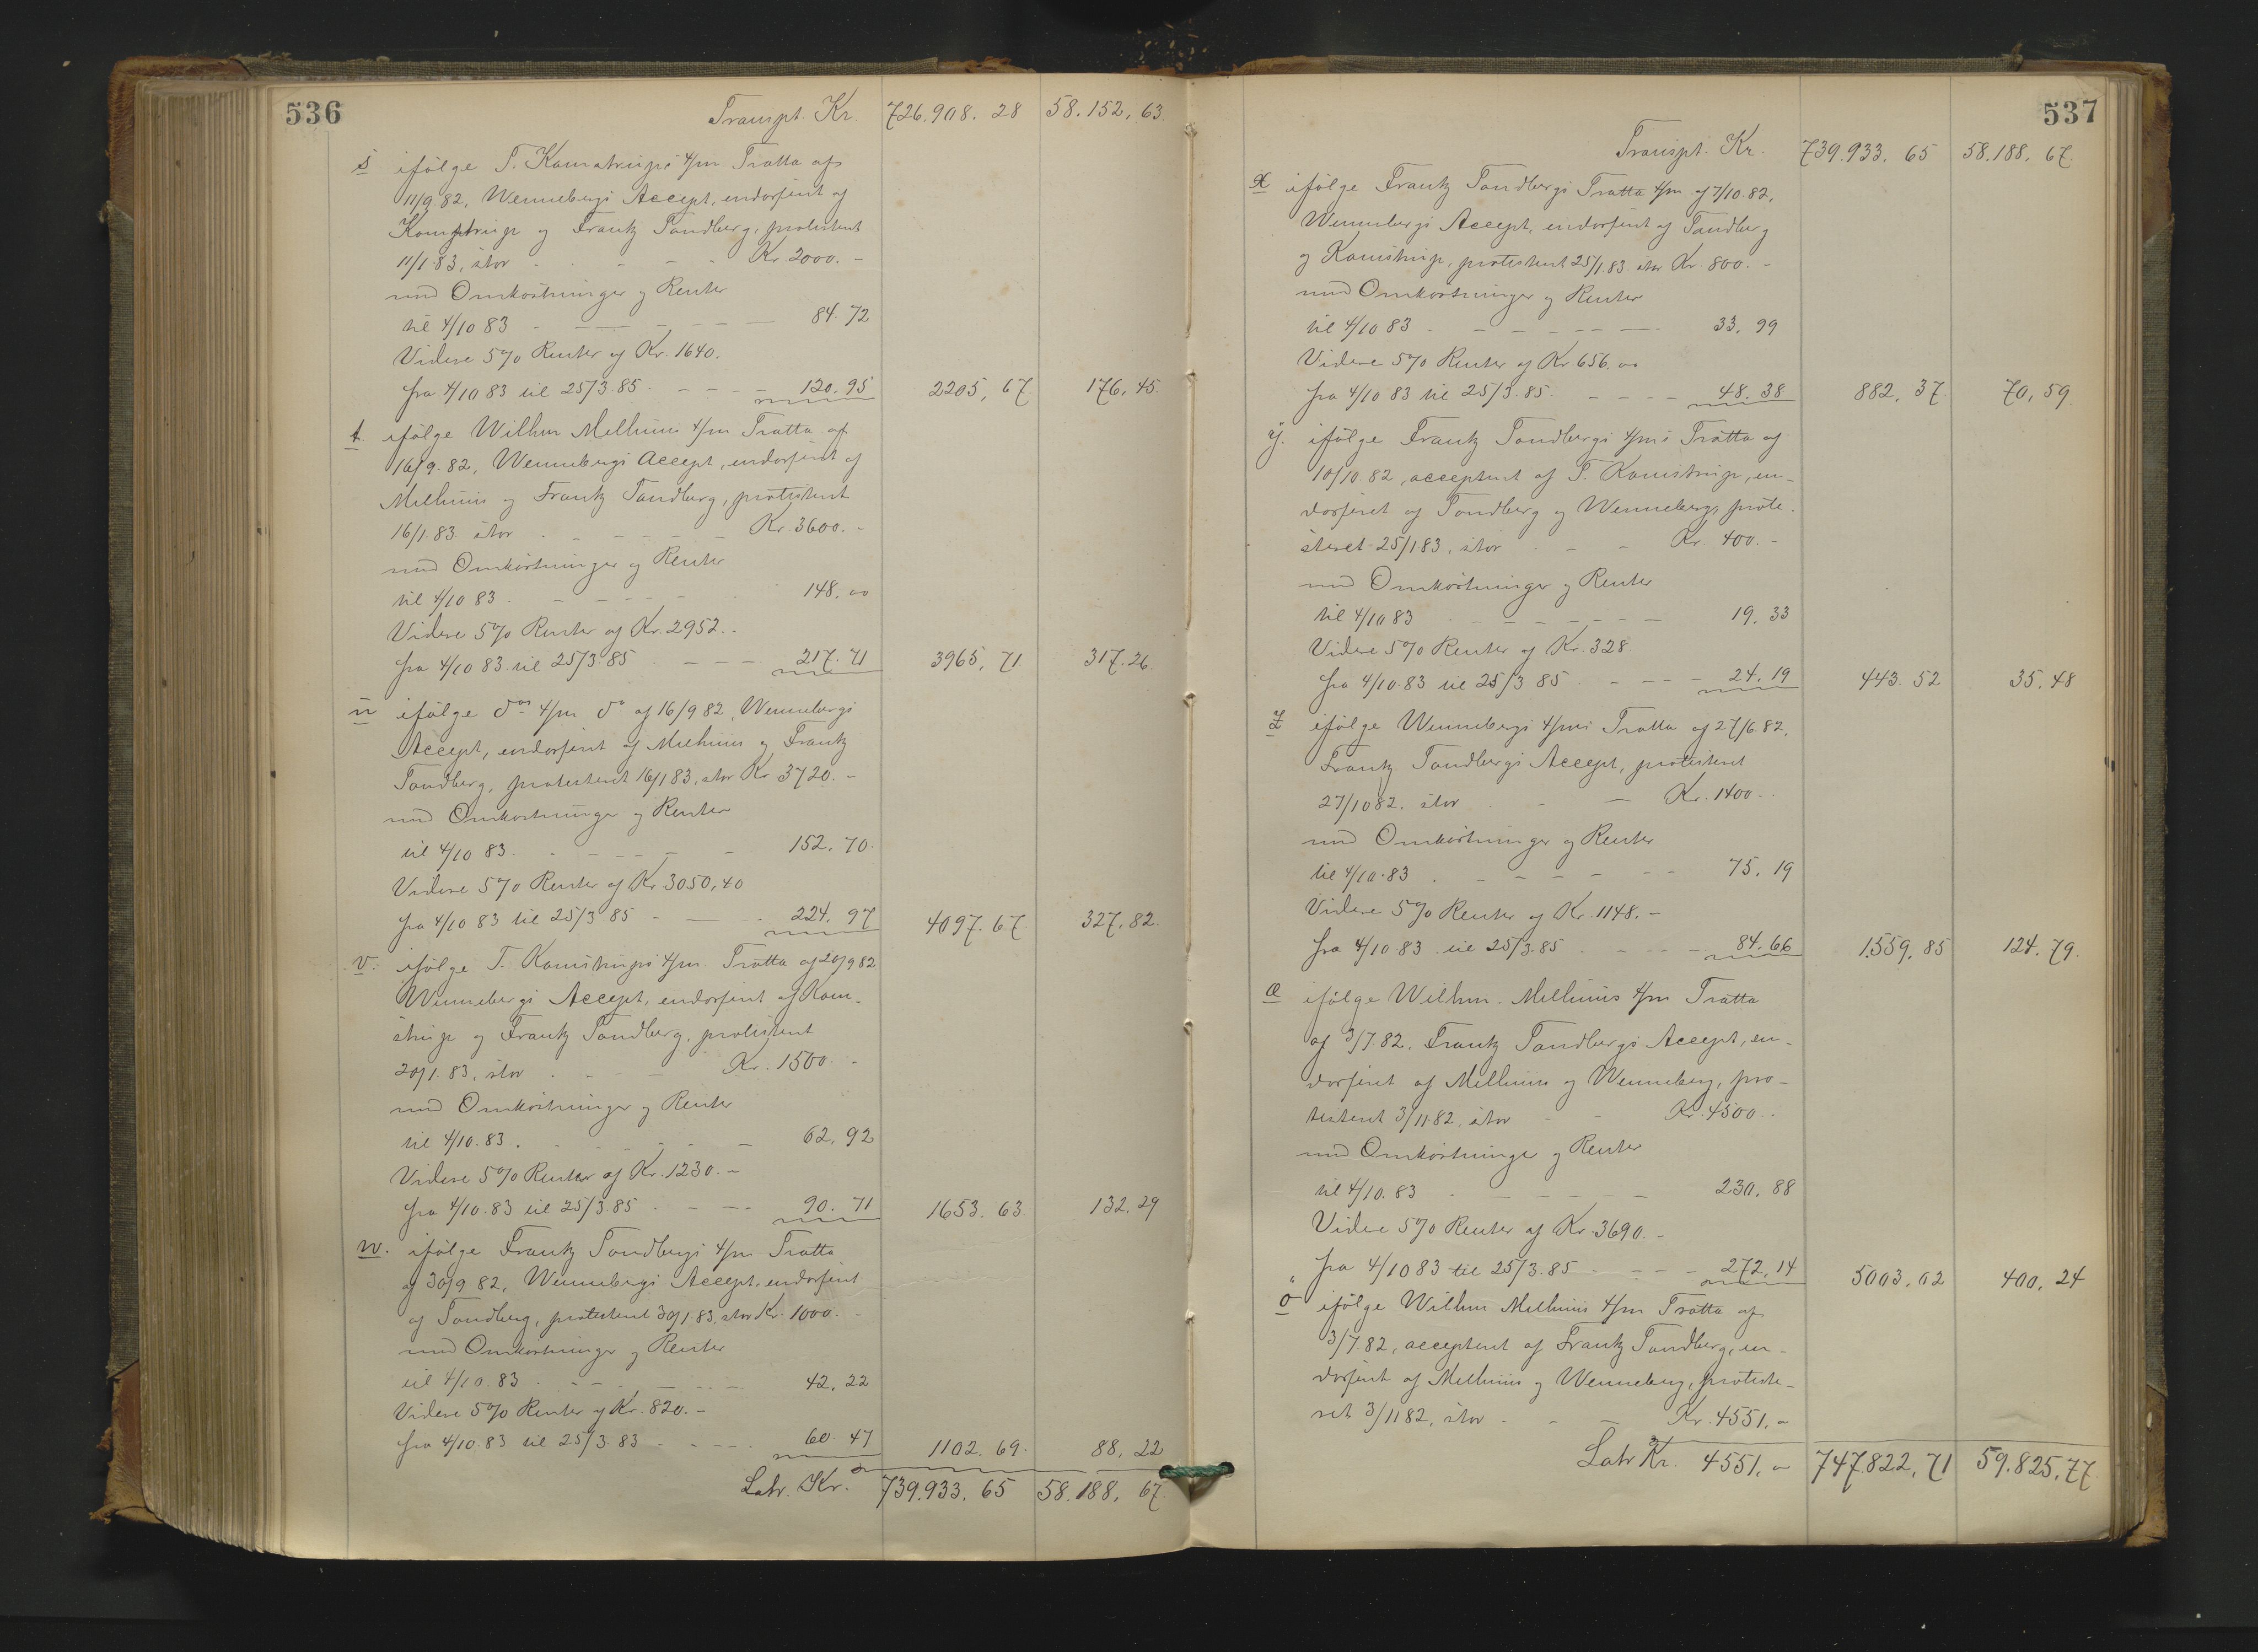 536
Transpt. Kr. 726.908. 28 58.152, 63.
s ifølge T. Kamstrups 4/m Tratta af
11/9 82, Wennebergs Accept, endosseret af
Kamstrup og Frantz Tandberg, protesteret
11/1 83, stor - - - Kr. 2000. -
med Omkostninger og Renter
til 4/10 83 - - - - - 84. 72
Videre 5% Renter af Kr. 1640.
fra 4/10 83 til 25/3. 85 - - - - 120. 95 2205, 67. 176, 45.
t. ifølge Wilhm Melhuus 4/m Tratta af
16/9. 82, Wennebergs Accept, endosseret af
Melhuus og Frantz Tandberg, protesteret
16/1. 83. stor - - - Kr. 3600. -
med Omkostninger og Renter
til 4/10 83. - - - - - 148. 00
Videre 5% Renter af Kr. 2952. -
fra 4/10 83 til 25/3 85 - - - 217. 71 3965, 71. 317. 26.
u ifølge do 4/m do af 16/9 82, Wennebergs
Accept, endosseret af Melhuus og Frantz
Tandberg, protesteret 16/1 83, stor Kr. 3720. -
med Omkostninger og Renter
til 4/10 83. - - - - - 152. 70.
Videre 5% Renter af Kr. 3050, 40
fra 4/10 83 til 25/3 85 - - - 224. 97 4097. 67. 327, 82.
v. ifølge T. Kamstrups 4/m Tratta af 20/9 82
Wennebergs Accept, endosseret af Kam-
strup og Frantz Tandberg, protesteret
20/1. 83, stor - - - Kr. 1500. -
med Omkostninger og Renter
til 4/10. 83. - - - - - 62, 92
Videre 5% Renter af Kr. 1230. -
fra 4/10. 83 til 25/3. 85 - - - 90. 71 1653. 63. 132. 29
w. ifølge Frantz Tandbergs 4/m Tratta
af 30/9 82, Wennebergs Accept, endosseret
af Tandberg, protesteret 30/1. 83, stor Kr. 1000. -
med Omkostninger og Renter
til 4/10. 83 - - - - - 42, 22
Videre 5% Renter af Kr. 820. -
fra 4/10. 83 til 25/3. 83 - - - 60. 47 1102. 69. 88, 22
Latr. Kr. 739.933. 65 58.188, 67.
537
Transpt. Kr. 739.933. 65 58.188, 67.
x ifølge Frantz Tandbergs Tratta 4/m af 7/10. 82,
Wennebergs Accept, endosseret af Tandberg
og Kamstrup, protesteret 25/1. 83. stor Kr. 800. -
med Omkostninger og Renter
til 4/10 83 - - - - - 33, 99
Videre 5% Renter af Kr 656, 00
fra 4/10 83 til 25/3. 85. - - - - 48, 38 882, 37. 70, 59.
y. ifølge Frantz Tandbergs 4/ms Tratta af
10/10. 82, accepteret af T. Kamstrup, en-
dosseret af Tandberg og Wenneberg, prote-
steret 25/1 83, stor - - - Kr. 400. -
med Omkostninger og Renter
til 4/10 83 - - - - - 19. 33
Videre 5% Renter af Kr. 328.
fra 4/10. 83 til 25/3 85 - - - - 24. 19 443. 52 35. 48
z ifølge Wennebergs 4/ms Tratta af 27/6 82,
Frantz Tandbergs Accept, protesteret
27/10 82. stor - - - Kr. 1400. -
med Omkostninger og Renter
til 4/10. 83 - - - - - 75. 19
Videre 5% Renter af Kr. 1148. -
fra 4/10. 83 til 25/3. 85 - - - - 84. 66 1.559, 85 124. 79.
æ ifølge Wilhm. Melhuus 4/m Tratta
af 3/7. 82. Frantz Tandbergs Accept, en-
dosseret af Melhuus og Wenneberg, pro-
testeret 3/11. 82, stor - - Kr. 4500. -
med Omkostninger og Renter
til 4/10. 83 - - - - - 230. 88
Videre 5% Renter af Kr. 3690. -
fra 4/10 83 til 25/3. 85 - - - - 272, 14 5003. 02 400, 24
ø ifølge Wilhm Melhuus 4/m Tratta af
3/7. 82, accepteret af Frantz Tandberg, en-
dosseret af Melhuus og Wenneberg, proteste-
ret 3/11 82, stor - - - Kr. 4551. -
Latr Kr. 4551. - 747.822, 71 59.825, 77.